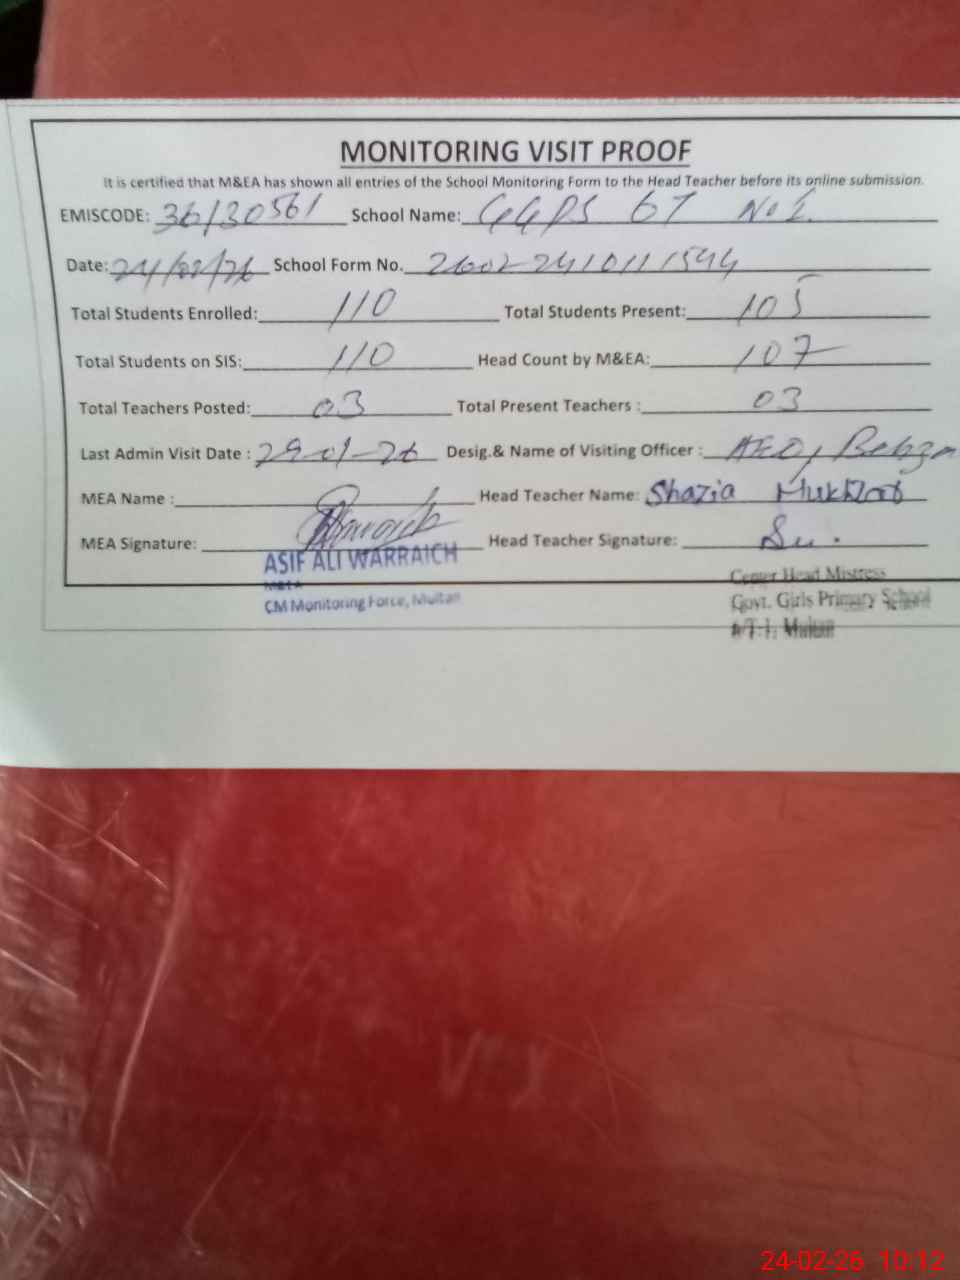 MONITORING VISIT PROOF
It is certified that M&EA has shown all entries of the School Monitoring Form to the Head Teacher before its online submission.
EMISCODE: 36130561 School Name: GGPS 6T No 1
Date: 24/02/26 School Form No. 26022410111544
Total Students Enrolled: 110 Total Students Present: 105
Total Students on SIS: 110 Head Count by M&EA: 107
Total Teachers Posted: 03 Total Present Teachers : 03
Last Admin Visit Date : 29-01-26 Desig.& Name of Visiting Officer : AEO,
MEA Name : Head Teacher Name: Shazia
MEA Signature: Head Teacher Signature:
ASIF ALI WARRAICH
M&EA
CM Monitoring Force, Multan
Center Head Mistress
Govt. Girls Primary School
6/T-1, Multan
24-02-26 10:12